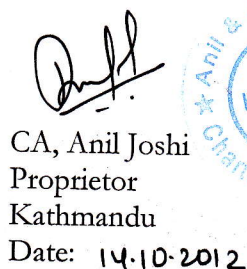 CA, Anil Joshi
Proprietor
Kathmandu
Date: 14.10.2012
Anil &
Char